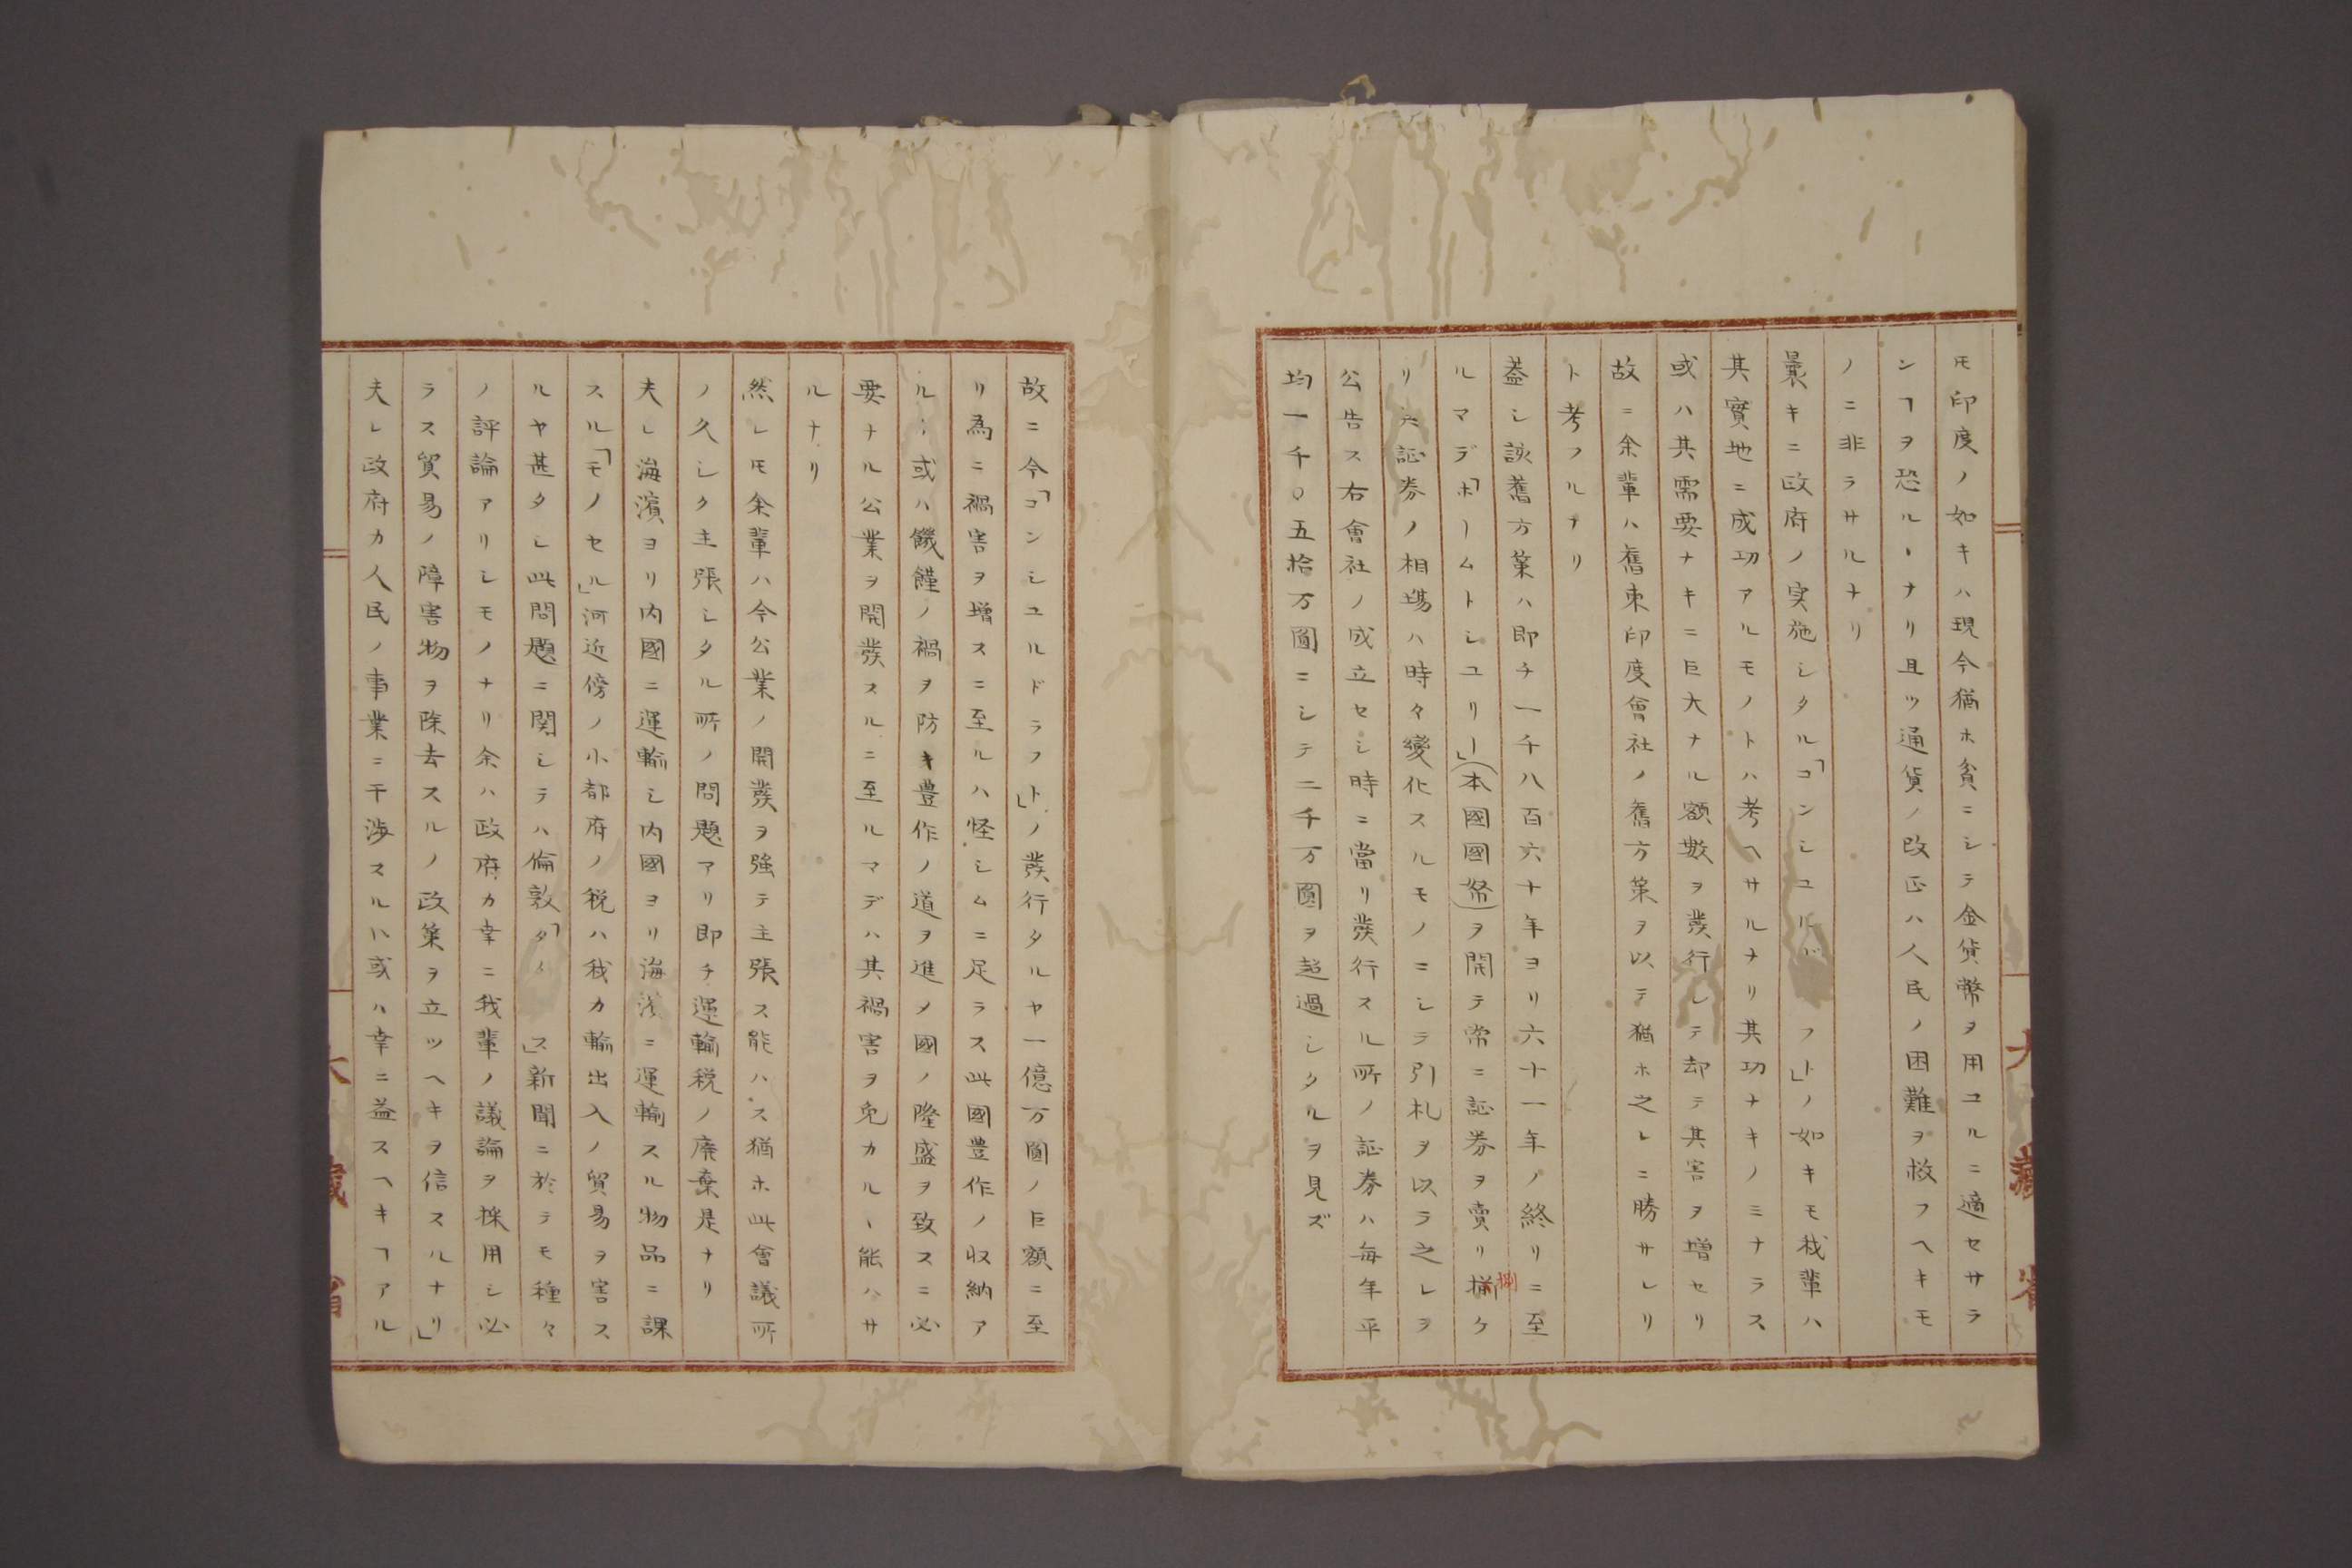 モ印度ノ如キハ現今猶ホ貧ニシテ金貨幣ヲ用ユルニ適セサラ
ンヿヲ恐ルヽナリ且ツ通貨ノ改正ハ人民ノ困難ヲ救フヘキモ
ノニ非ラサルナリ
曩キニ政府ノ実施シタル「コンシユルドラフト」ノ如キモ我輩ハ
其實地ニ成功アルモノトハ考ヘサルナリ其功ナキノミナラス
或ハ其需要ナキニ巨大ナル額数ヲ發行シテ却テ其害ヲ増セリ
故ニ余輩ハ舊東印度會社ノ舊方策ヲ以テ猶ホ之レニ勝サレリ
ト考フルナリ
蓋シ該舊方策ハ即チ一千八百六十年ヨリ六十一年ノ終リニ至
ルマデ「ホームトシユリー」(本國國帑)ヲ開テ常ニ証券ヲ賣リ捌ケ
リ𪜈証券ノ相場ハ時々變化スルモノニシテ引札ヲ以テ之レヲ
公告ス右會社ノ成立セシ時ニ當リ發行スル所ノ証券ハ毎年平
均一千〇五拾万圓ニシテ二千万圓ヲ超過シタルヲ見ズ
故ニ今「コンシユルドラフト」ノ發行タルヤ一億万圓ノ巨額ニ至
リ為ニ禍害ヲ増スニ至ルハ怪シムニ足ラス此國豊作ノ収納ア
ルニ或ハ饑饉ノ禍ヲ防キ豊作ノ道ヲ進メ國ノ隆盛ヲ致スニ必
要ナル公業ヲ開發スルニ至ルマデハ其禍害ヲ免カルヽ能ハサ
ルナリ
然レモ余輩ハ今公業ノ開發ヲ強テ主張ス能ハス猶ホ此會議所
ノ久シク主張シタル所ノ問題アリ即チ運輸税ノ廃棄是ナリ
夫レ海濱ヨリ内國ニ運輸シ内國ヨリ海濱ニ運輸スル物品ニ課
スル「モノセル」河近傍ノ小都府ノ税ハ我カ輸出入ノ貿易ヲ害ス
ルヤ甚タシ此問題ニ関シテハ倫敦「タイムス」新聞ニ於テモ種々
ノ評論アリシモノナリ余ハ政府カ幸ニ我輩ノ議論ヲ採用シ必
ラス貿易ノ障害物ヲ除去スルノ政策ヲ立ツヘキヲ信スルナリ」
夫レ政府カ人民ノ事業ニ干渉スルハ或ハ幸ニ益スヘキヿアル
大藏省